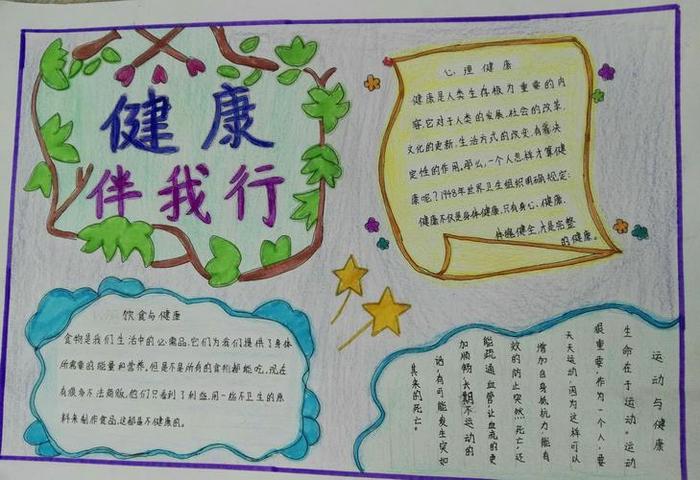 健康
伴我行
心理健康
健康是人类生存极为重要的内
容,它对于人类的发展,社会的改革,
文化的更新,生活方式的改变,有着决
定性的作用。那么,一个人怎样才算健
康呢?1948年世界卫生组织明确规定:
健康不仅是身体健康,只有身心健康、
体魄健全,才是完整
的健康。
饮食与健康
食物是我们生活中的必需品,它们为我们提供了身体
所需要的能量和营养。但是不是所有的食物都能吃,现在
有很多不法商贩,他们只看到了利益,用一些不卫生的原
料来制作食品,这都是不健康的。
运动与健康
生命在于运动。运动
很重要,作为一个人,要
天天运动,因为这样可以
增加自身抵抗力,能有
效的防止突然死亡;还
能疏通血管,让血流的更
加顺畅,长期不运动的
话,有可能发生突如
其来的死亡。